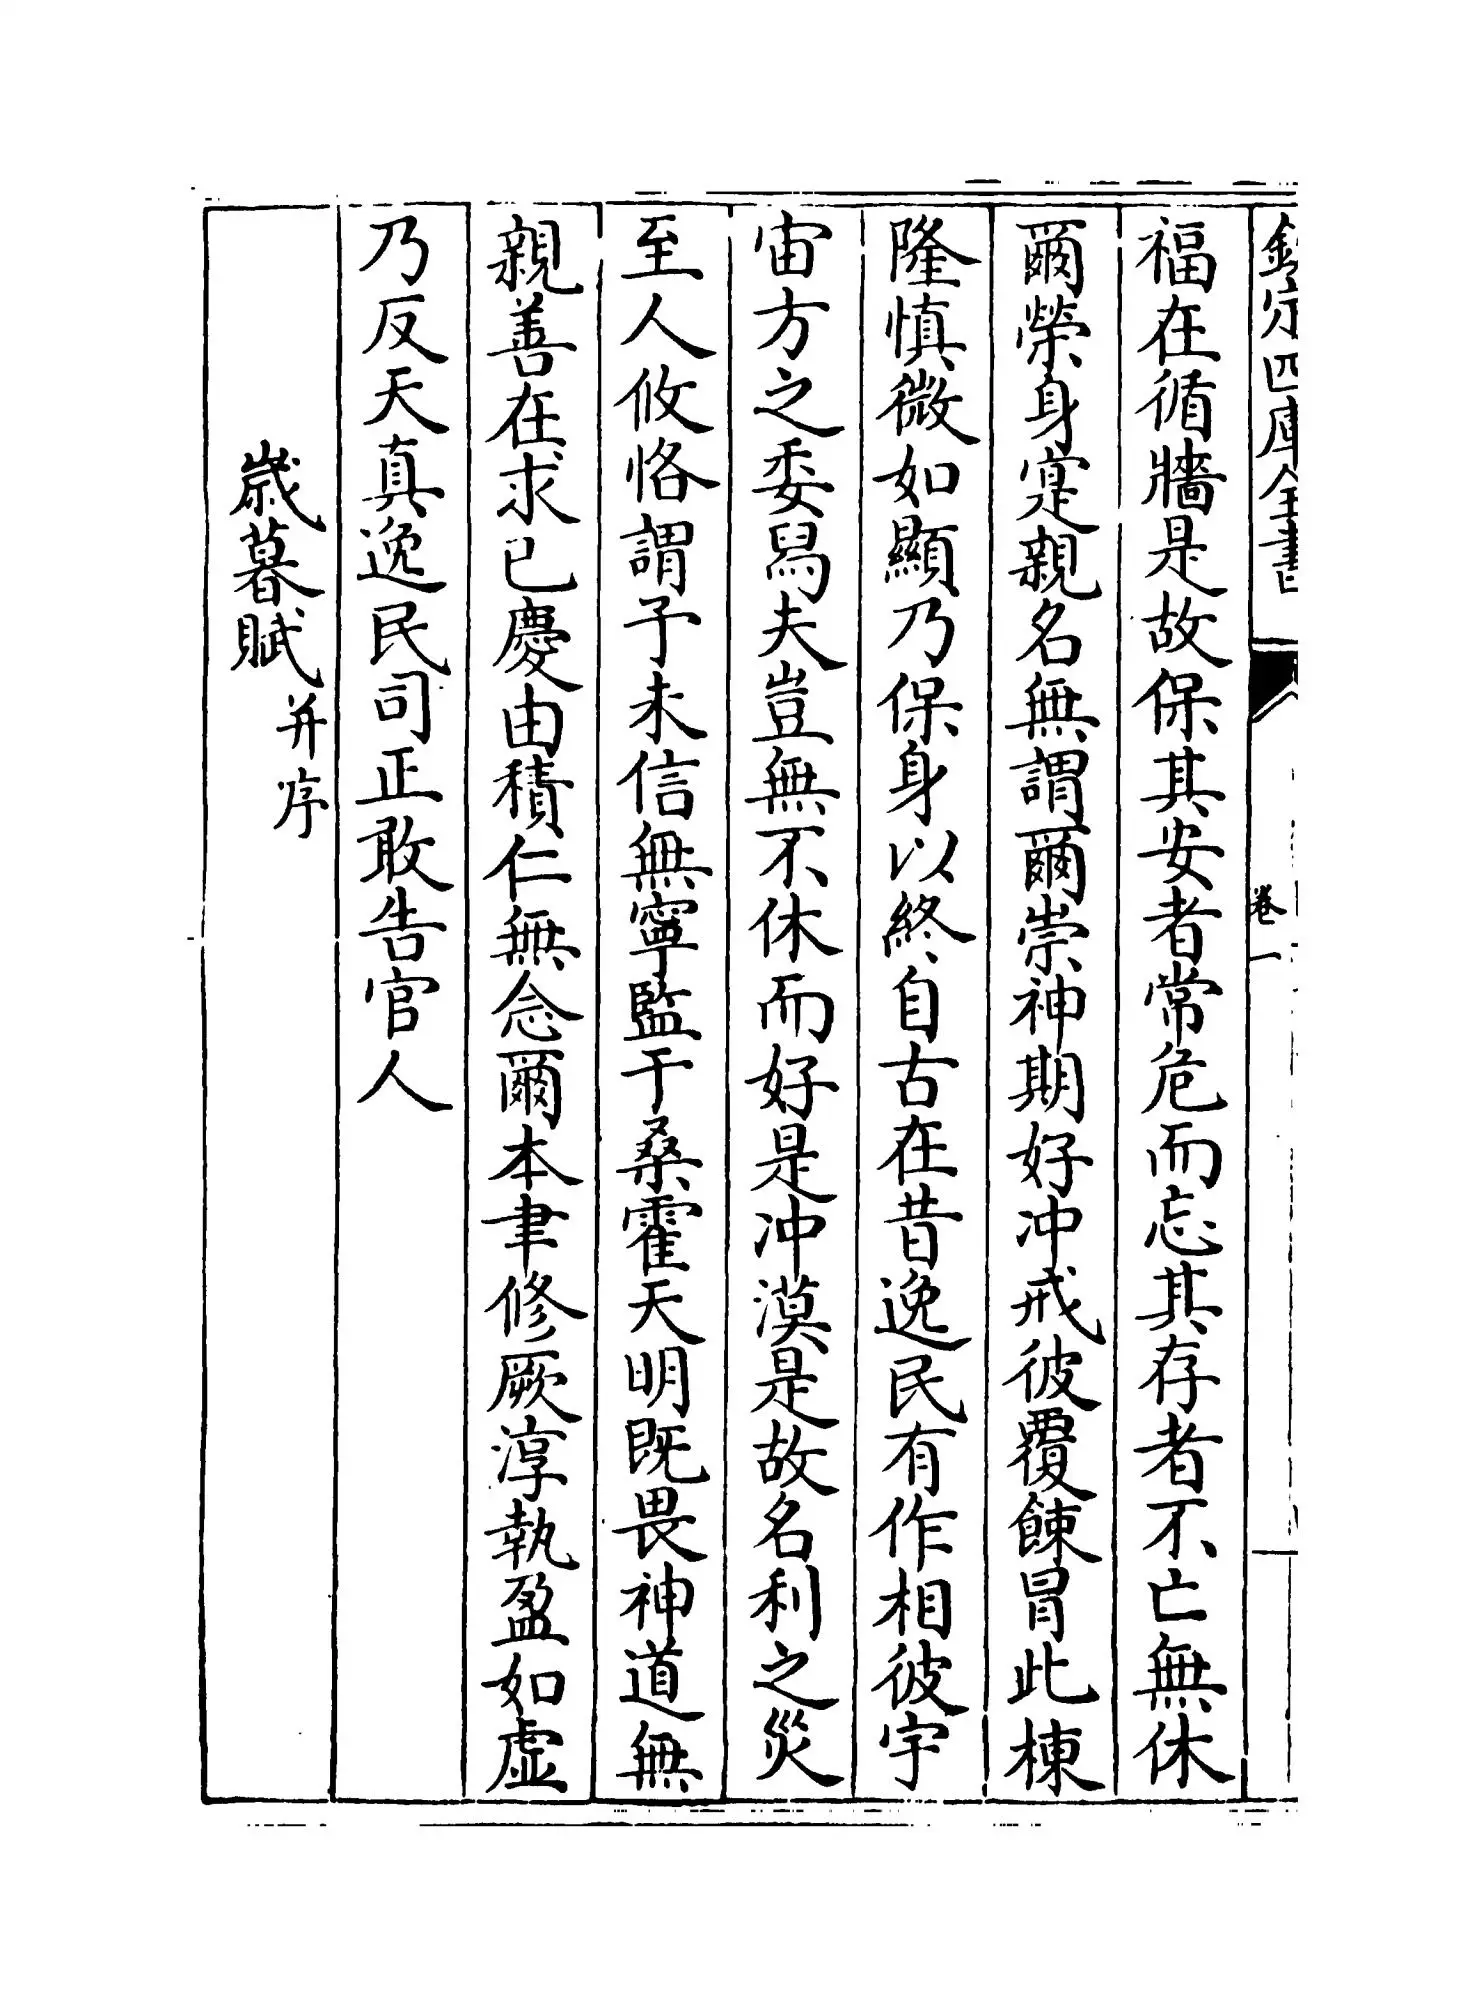 欽定四庫全書
卷一
福在循牆是故保其安者常危而忘其存者不亡無休
爾榮身寔親名無謂爾崇神期好冲戒彼覆餗冒此棟
隆慎微如顯乃保身以終自古在昔逸民有作相彼宇
宙方之委舄夫豈無不休而好是冲漠是故名利之災
至人攸恪謂予未信無寧監于桑霍天明既畏神道無
親善在求已慶由積仁無念爾本聿修厥淳執盈如虛
乃反天真逸民司正敢告官人
歲暮賦并序